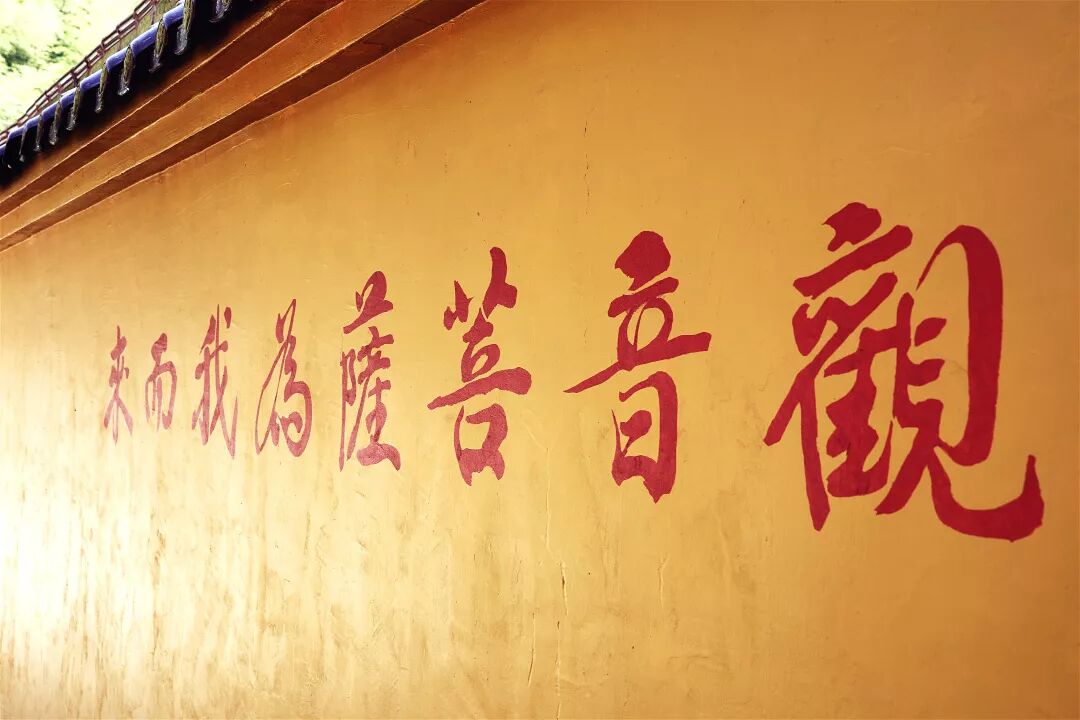 觀音菩薩為我而來